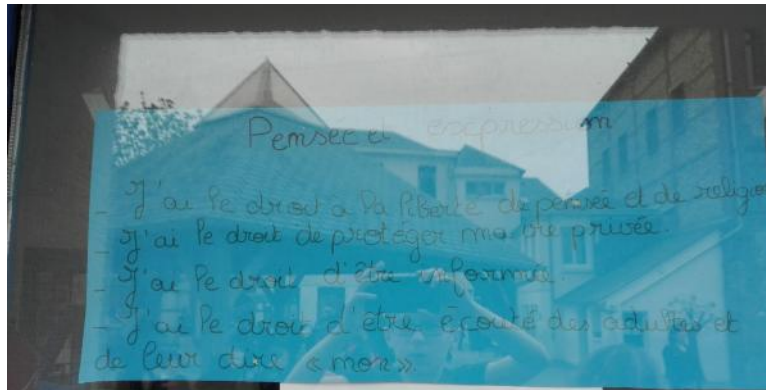 Pensée et expression
- J'ai le droit a la liberté de pensée et de religion
- J'ai le droit de protéger ma vie privée.
- J'ai le droit d'être informée.
- J'ai le droit d'être écouté des adultes et
de leur dire « non ».